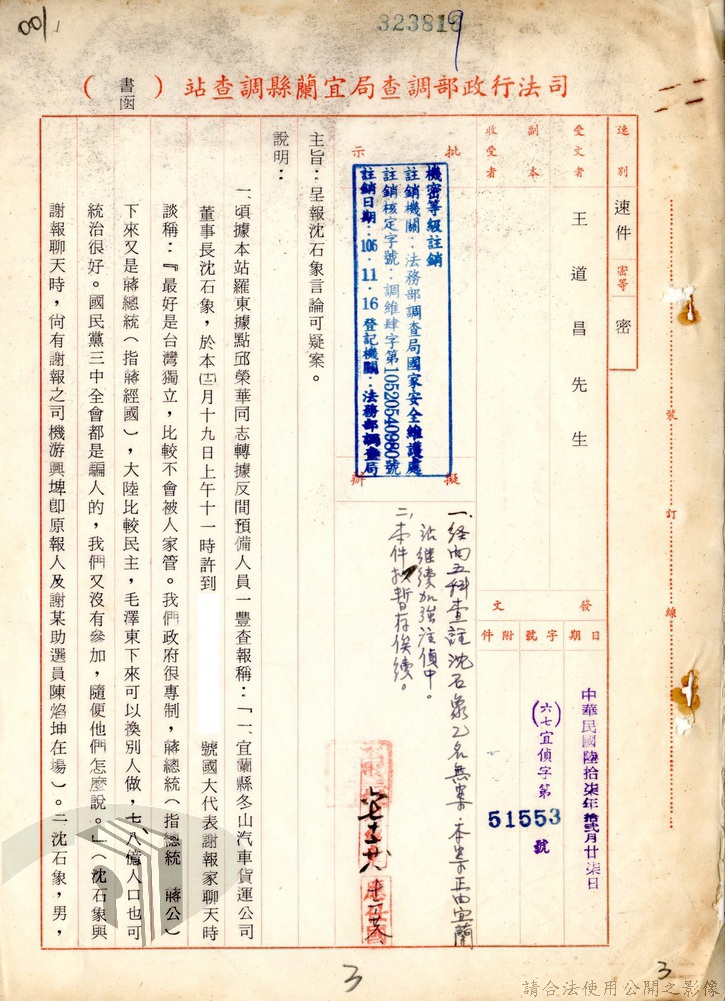 001
323819
司法行政部調查局宜蘭縣調查站（書函）
速別
速件
密等
密
受文者
王道昌先生
副本
收受者
批示
擬辦
發文
日期
字號
附件
中華民國陸拾柒年拾貳月廿柒日
(六七)宜偵字第
51553
號
機密等級註銷
註銷機關：法務部調查局國家安全維護處
註銷核定字號：調維肆字第10520540980號
註銷日期：105．11．16 登記機關：法務部調查局
一、經向五科查註沈石象乙名無案，本案正由宜蘭
站繼續加強注偵中。
二、本件擬暫存俟續。
主旨：呈報沈石象言論可疑案。
說明：
一、頃據本站羅東據點邱榮華同志轉據反間預備人員一豐查報稱：「一、宜蘭縣冬山汽車貨運公司
董事長沈石象，於本(十二)月十九日上午十一時許到　　　號國大代表謝報家聊天時
談稱：『最好是台灣獨立，比較不會被人家管。我們政府很專制，蔣總統（指總統　蔣公）
下來又是蔣總統（指蔣經國），大陸比較民主，毛澤東下來可以換別人做，七、八億人口也可
統治很好。國民黨三中全會都是騙人的，我們又沒有參加，隨便他們怎麼說。』（沈石象與
謝報聊天時，尚有謝報之司機游興埤即原報人及謝某助選員陳焰坤在場）。二沈石象，男，
裝訂線
3
3
請合法使用公開之影像